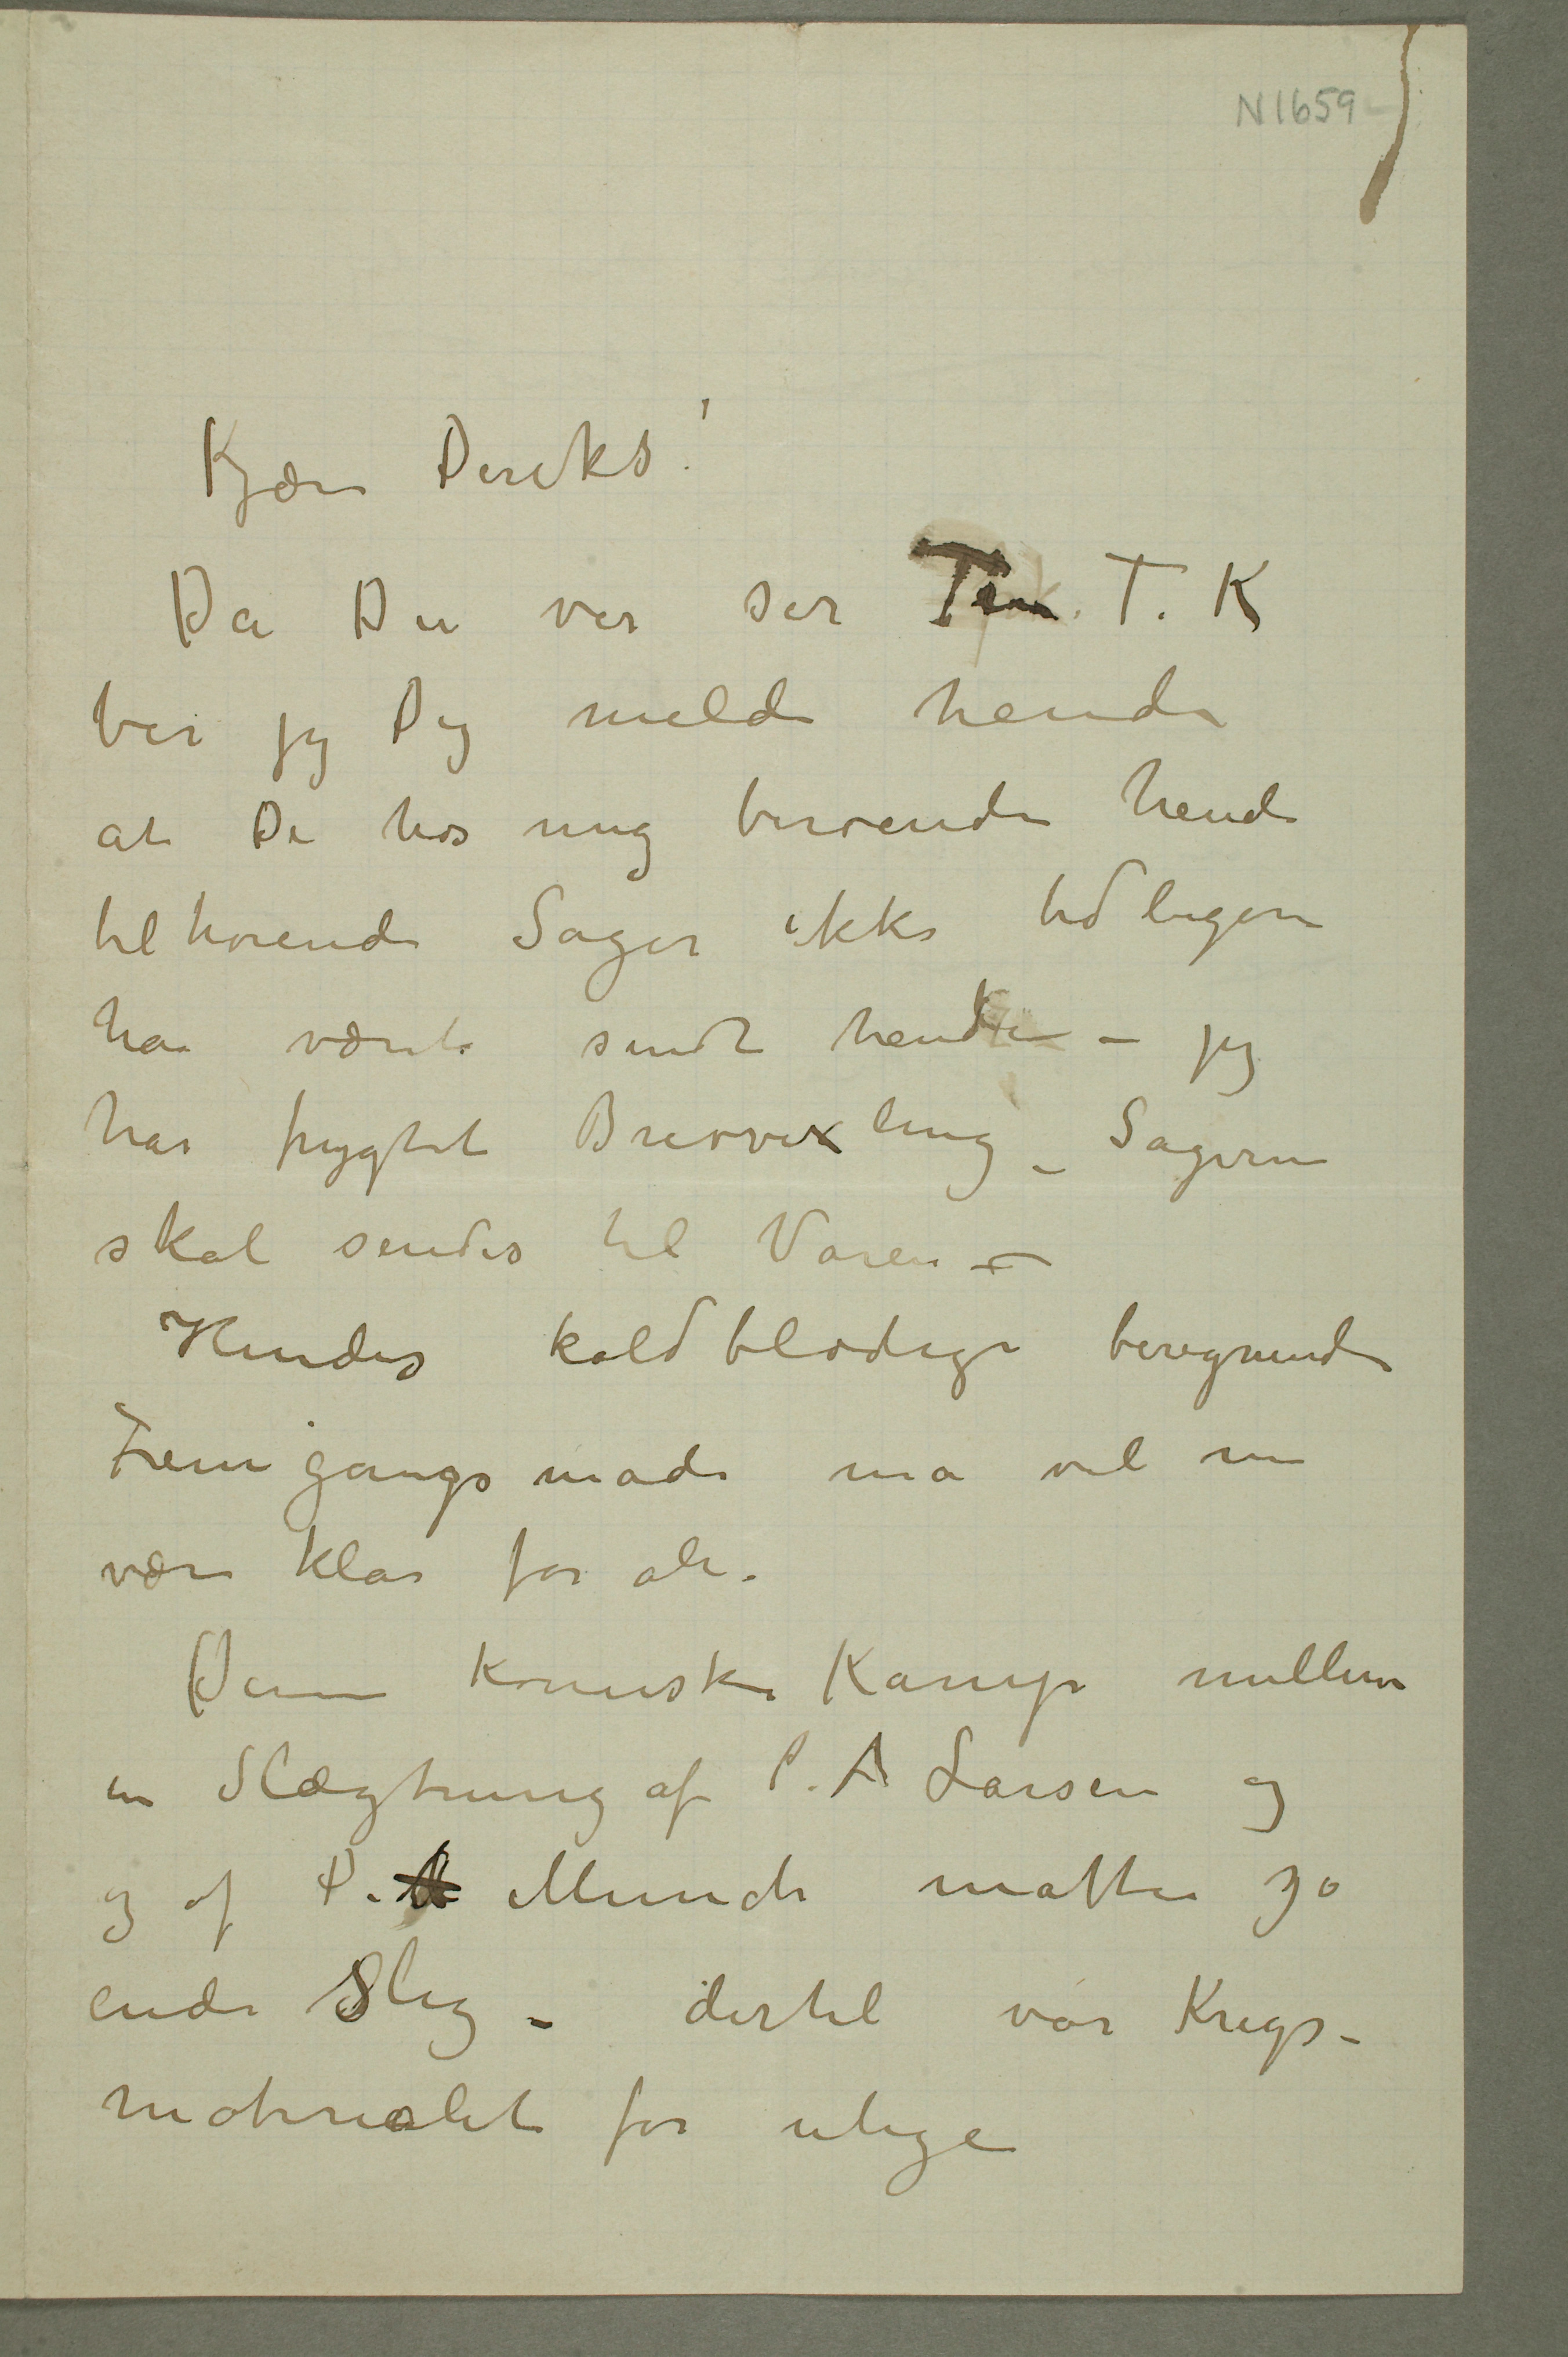 N 1659
Kjære Dereks!
Da Du ver ser T. K
ber jeg Dig melde hende
at De hos mig beroende hende
tilhorende Sager ikke tidligere
har været sendt hende – jeg
har frygtet Brevvexling – Sagerne
skal sendes til Våren –
Hendes koldblodige beregnende
Fremgangsmåde må vel nu
være klar for alle.
Denne komiske Kamp mellem
en Slægtning af P. A Larsen og
og af P. A Munch måtte jo
ende slig – dertil var Krigs-
materialet for ulige